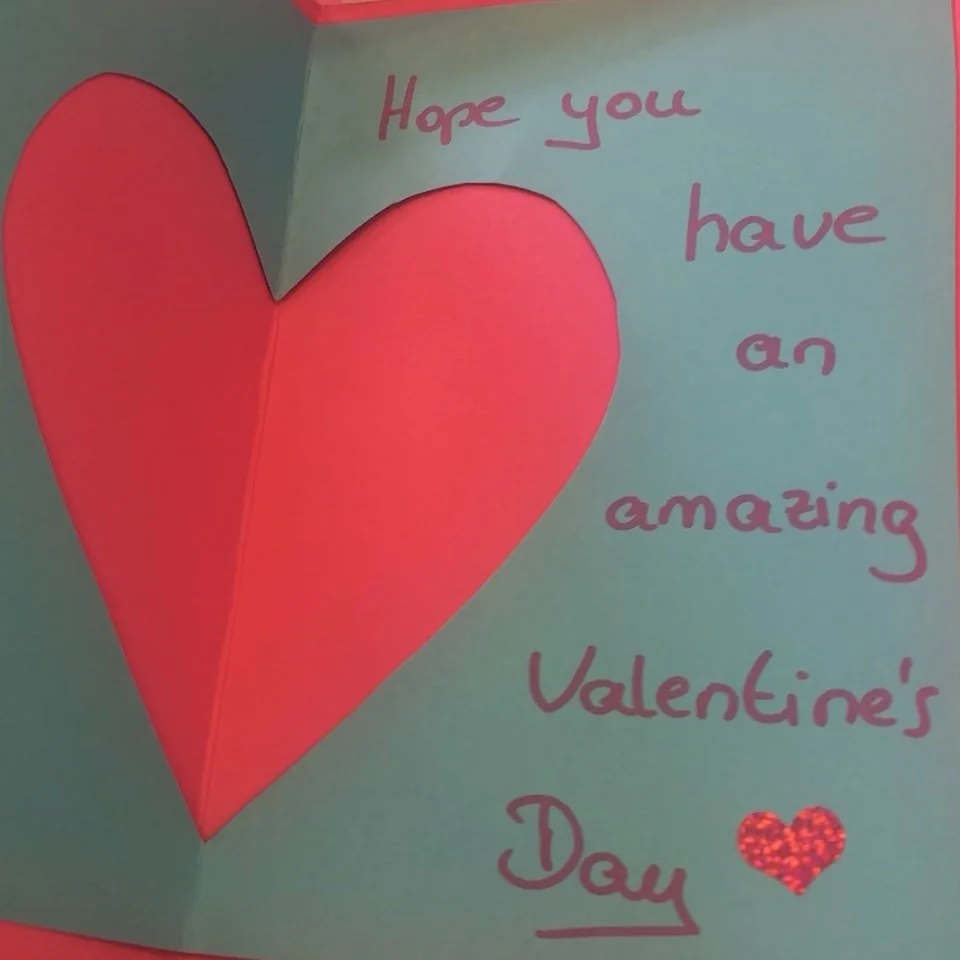 Hope you
have
an
amazing
Valentine's
Day